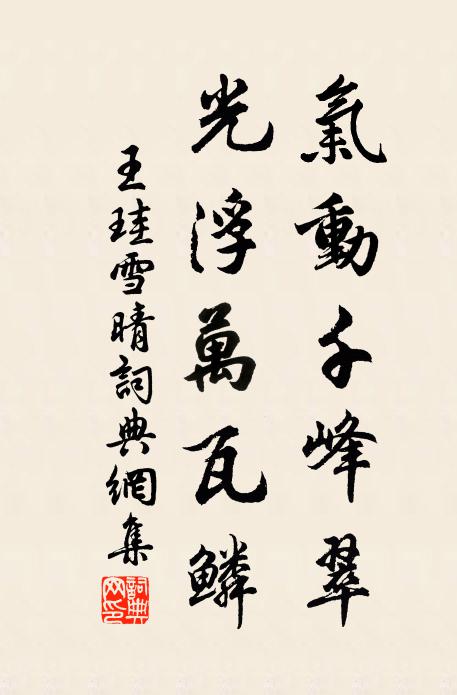 氣動千峰翠
光浮萬瓦鱗
王珪雪晴詞典網集
詞典網印